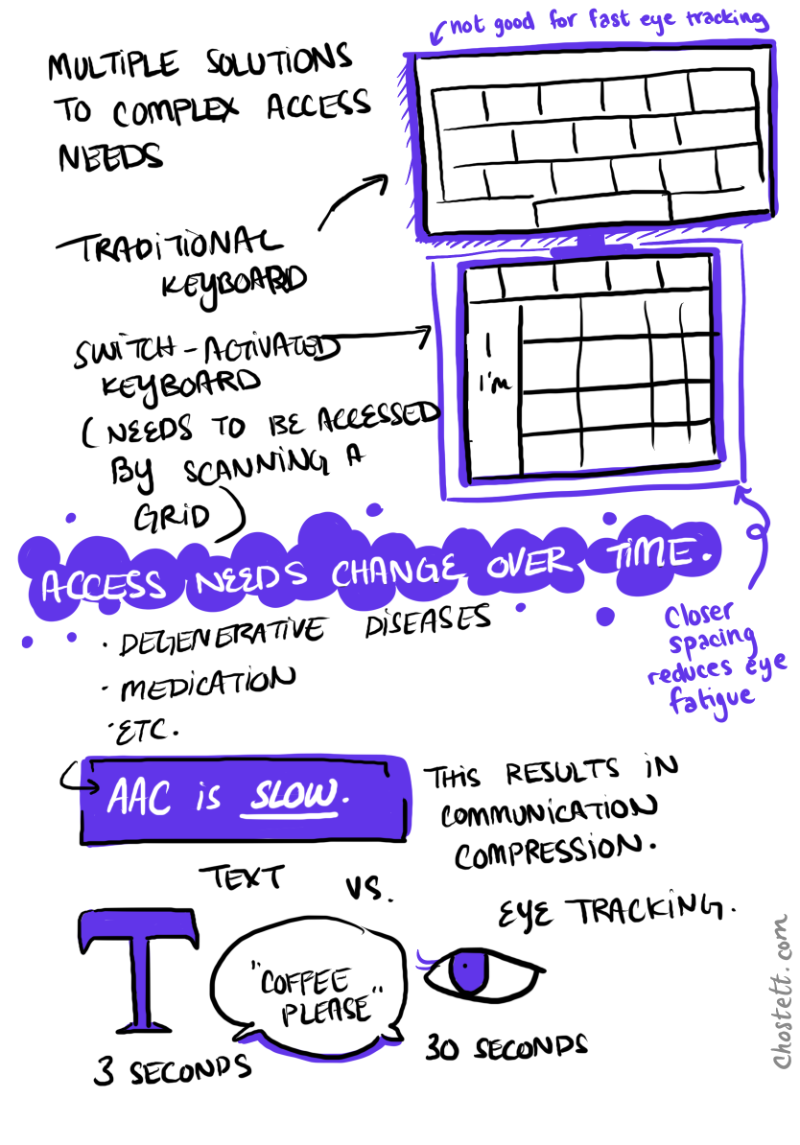 not good for fast eye tracking
MULTIPLE SOLUTIONS
TO COMPLEX ACCESS
NEEDS
TRADITIONAL
KEYBOARD
SWITCH-ACTIVATED
KEYBOARD
(NEEDS TO BE ACCESSED
BY SCANNING A
GRID)
I
I'm
ACCESS NEEDS CHANGE OVER TIME.
Closer
spacing
reduces eye
fatigue
· DEGENERATIVE DISEASES
· MEDICATION
· ETC.
AAC is SLOW.
THIS RESULTS IN
COMMUNICATION
COMPRESSION.
TEXT VS.
EYE TRACKING.
T
"COFFEE
PLEASE"
3 SECONDS
30 SECONDS
chostett.com